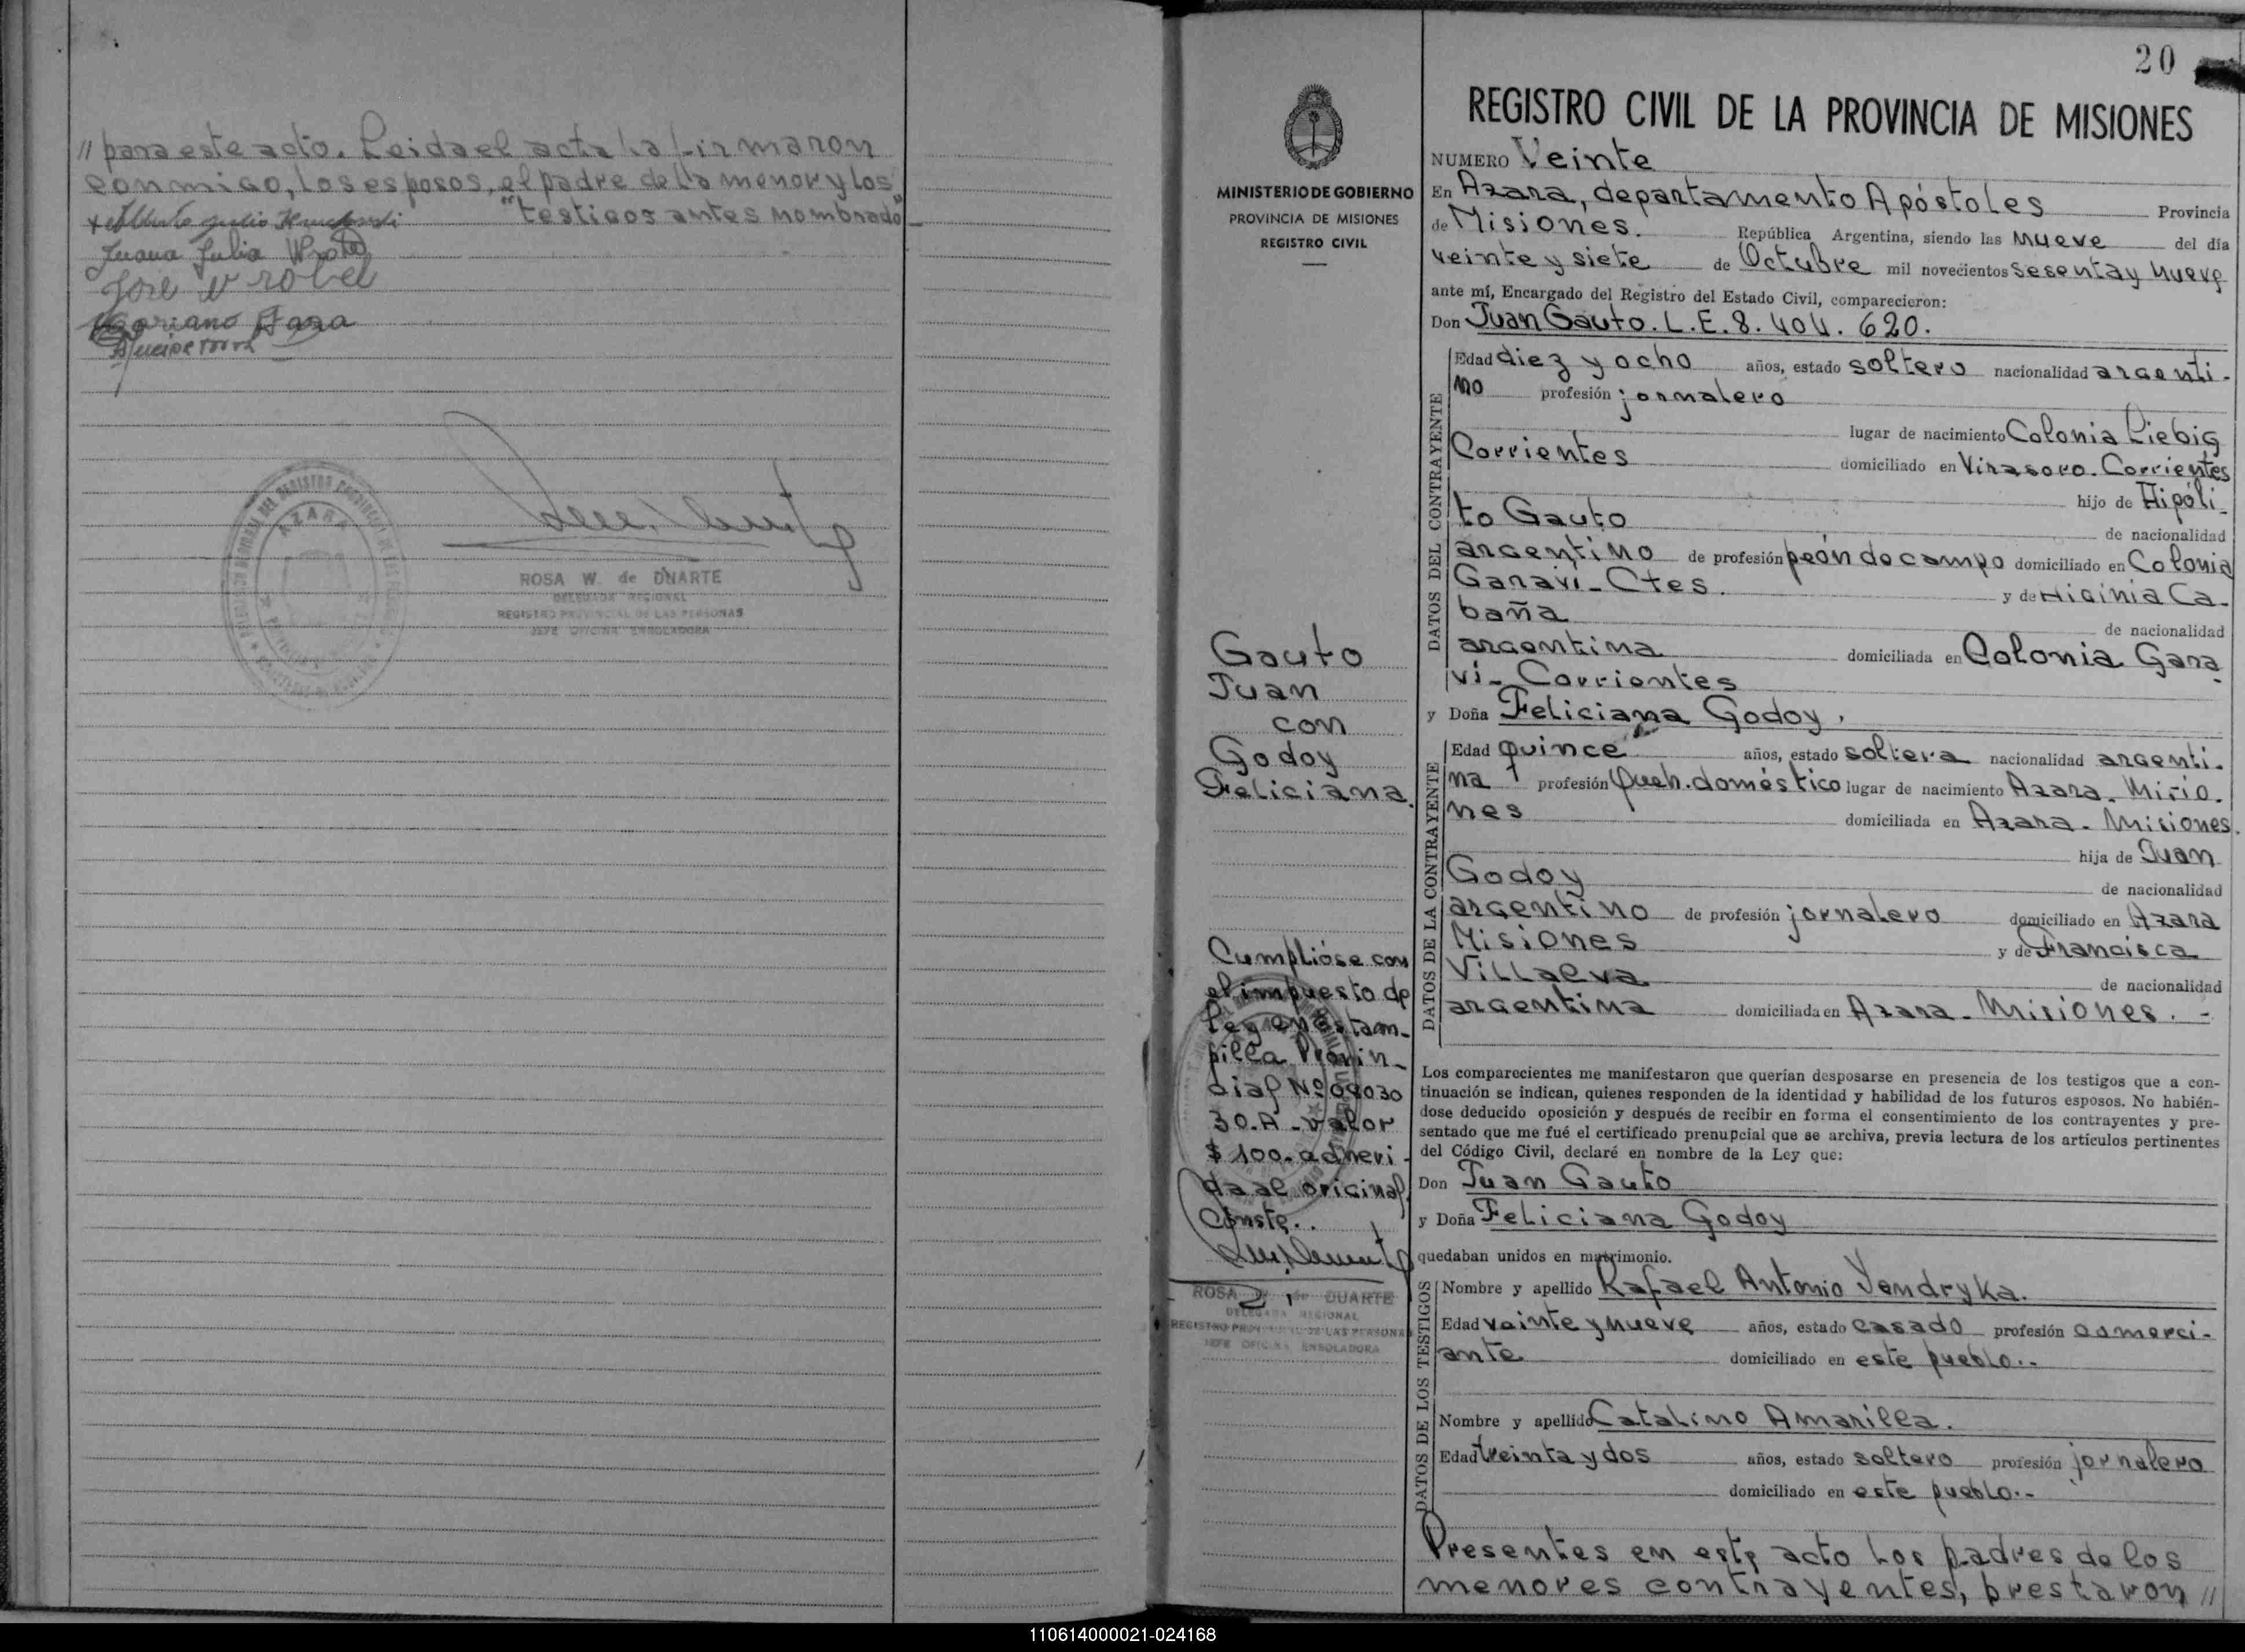 // para este acto. Leida el acta la firmaron
conmigo, los esposos, el padre de la menor y los
"testigos antes nombrado"
Juana Julia Wrobel
José Wrobel
Mariano Faza
AZARA
ROSA W. de DUARTE
DELEGADA REGIONAL
REGISTRO PROVINCIAL DE LAS PERSONAS
JEFE OFICINA ENROLADORA
MINISTERIO DE GOBIERNO
PROVINCIA DE MISIONES
REGISTRO CIVIL
Gauto
Juan
con
Godoy
Feliciana.
Cumplióse con
el impuesto de
Ley en estam-
pilla Provin-
cial Nº 09030
30.A - valor
$ 100. adheri-
da al original.
Conste..
ROSA W. de DUARTE
DELEGADA REGIONAL
REGISTRO PROVINCIAL DE LAS PERSONAS
JEFE OFICINA ENROLADORA
20
REGISTRO CIVIL DE LA PROVINCIA DE MISIONES
NUMERO Veinte
En Azara, departamento Apóstoles Provincia
de Misiones. República Argentina, siendo las nueve del día
veinte y siete de Octubre mil novecientos sesenta y nueve
ante mí, Encargado del Registro del Estado Civil, comparecieron:
Don Juan Gauto. L.E. 8.404.620.
DATOS DEL CONTRAYENTE
Edad diez y ocho años, estado soltero nacionalidad argenti-
no profesión jornalero
lugar de nacimiento Colonia Liebig
Corrientes domiciliado en Virasoro. Corrientes
hijo de Hipóli-
to Gauto de nacionalidad
argentino de profesión peón de campo domiciliado en Colonia
Garaví - Ctes. y de Higinia Ca-
baña de nacionalidad
argentina domiciliada en Colonia Gara-
ví - Corrientes
y Doña Feliciana Godoy.
DATOS DE LA CONTRAYENTE
Edad quince años, estado soltera nacionalidad argenti-
na profesión Queh. doméstico lugar de nacimiento Azara. Misio-
nes domiciliada en Azara - Misiones.
hija de Juan
Godoy de nacionalidad
argentino de profesión jornalero domiciliado en Azara
Misiones y de Francisca
Villalva de nacionalidad
argentina domiciliada en Azara - Misiones. -
Los comparecientes me manifestaron que querían desposarse en presencia de los testigos que a con-
tinuación se indican, quienes responden de la identidad y habilidad de los futuros esposos. No habién-
dose deducido oposición y después de recibir en forma el consentimiento de los contrayentes y pre-
sentado que me fué el certificado prenupcial que se archiva, previa lectura de los artículos pertinentes
del Código Civil, declaré en nombre de la Ley que:
Don Juan Gauto
y Doña Feliciana Godoy
quedaban unidos en matrimonio.
DATOS DE LOS TESTIGOS
Nombre y apellido Rafael Antonio Yendryka.
Edad veinte y nueve años, estado casado profesión comerci-
ante domiciliado en este pueblo..-
Nombre y apellido Catalino Amarilla.
Edad treinta y dos años, estado soltero profesión jornalero
domiciliado en este pueblo..-
Presentes en este acto los padres de los
menores contrayentes, prestaron //
110614000021-024168